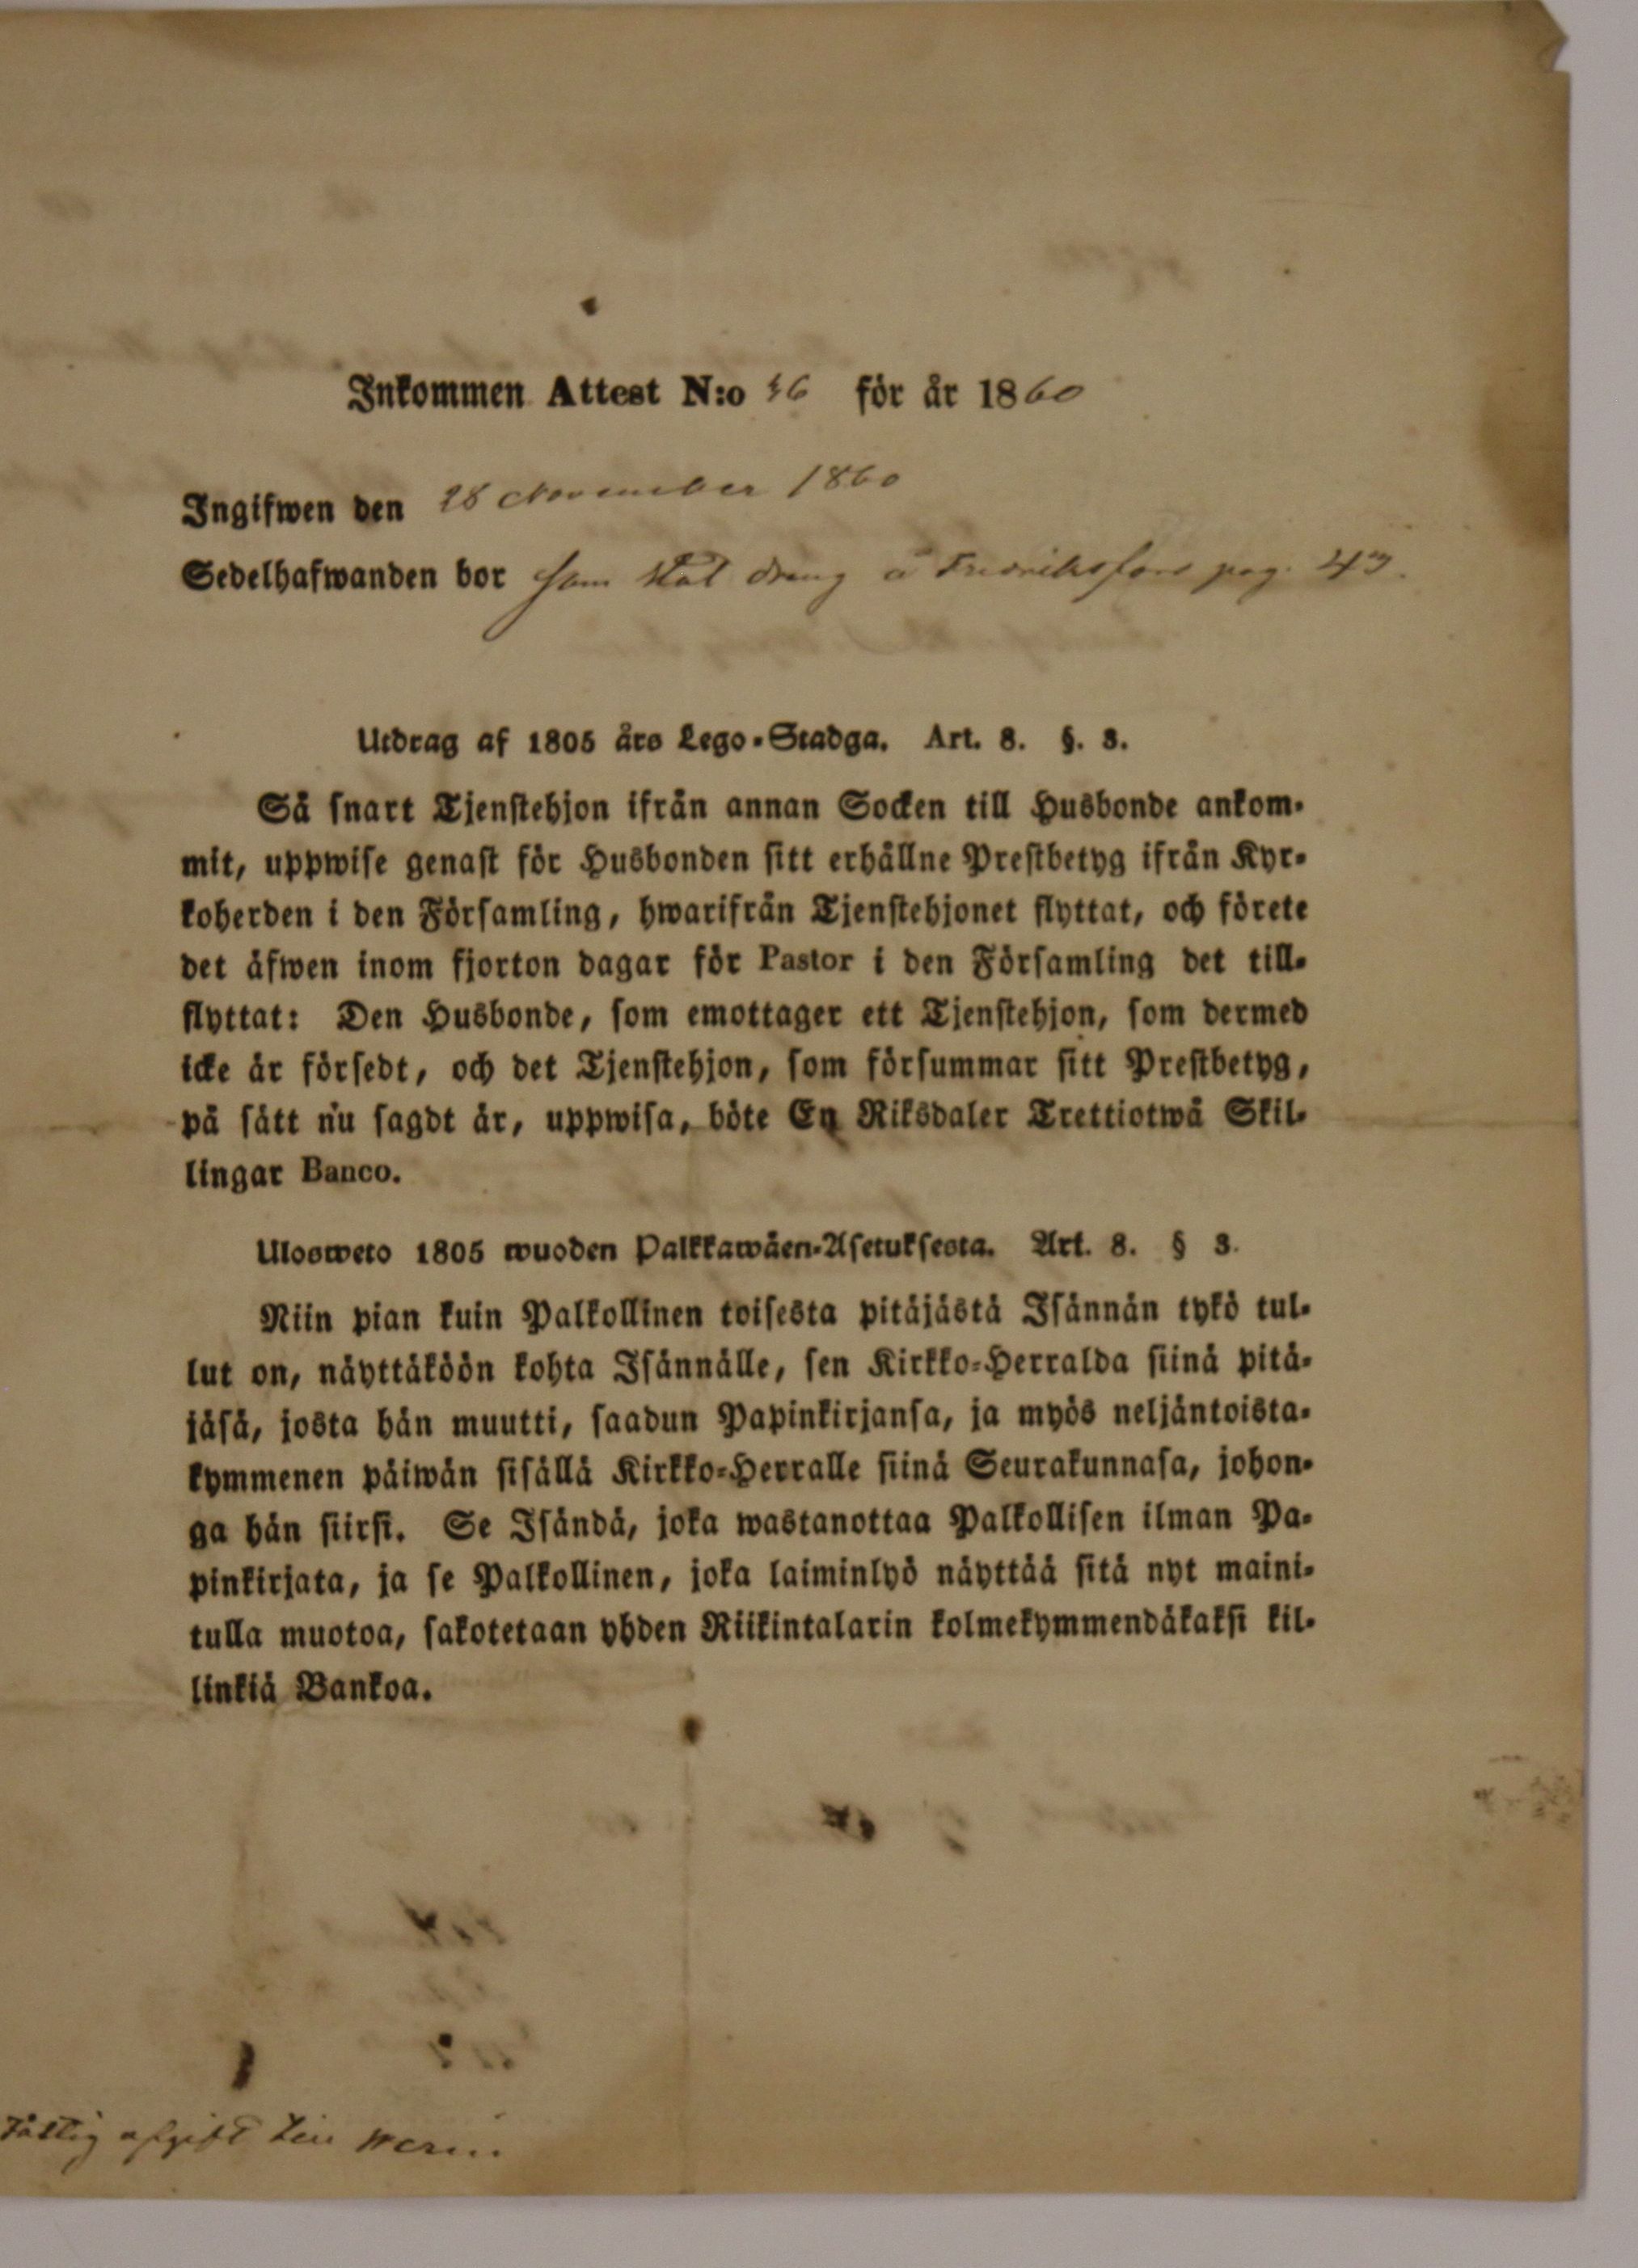 Inkommen Attest N:o 36 för år 1860
Ingifwen den 28 November 1860
Sedelhafwanden bor som Stat dräng å Fredriksfors pag. 43.
Utdrag af 1805 års Lego-Stadga. Art. 8. §. 3.
Så snart Tjenstehjon ifrån annan Socken till Husbonde ankom-
mit, uppwise genast för Husbonden sitt erhållne Prestbetyg ifrån Kyr-
koherden i den Församling, hwarifrån Tjenstehjonet flyttat, och förete
det äfwen inom fjorton dagar för Pastor i den Församling det till-
flyttat: Den Husbonde, som emottager ett Tjenstehjon, som dermed
icke är försedt, och det Tjenstehjon, som försummar sitt Prestbetyg,
på sätt nu sagdt är, uppwisa, böte En Riksdaler Trettiotwå Skil-
lingar Banco.
Ulosweto 1805 wuoden Palkkawäen-Asetuksesta. Art. 8. § 3.
Niin pian kuin Palkollinen toisesta pitäjästä Isännän tykö tul-
lut on, näyttäköön kohta Isännälle, sen Kirkko-Herralda siinä pitä-
jäsä, josta hän muutti, saadun Papinkirjansa, ja myös neljäntoista-
kymmenen päiwän sisällä Kirkko-Herralle siinä Seurakunnasa, johon-
ga hän siirsi. Se Isändä, joka wastanottaa Palkollisen ilman Pa-
pinkirjata, ja se Palkollinen, joka laiminlyö näyttää sitä nyt maini-
tulla muotoa, sakotetaan yhden Riikintalarin kolmekymmendäkaksi kil-
linkiä Bankoa.
afgift